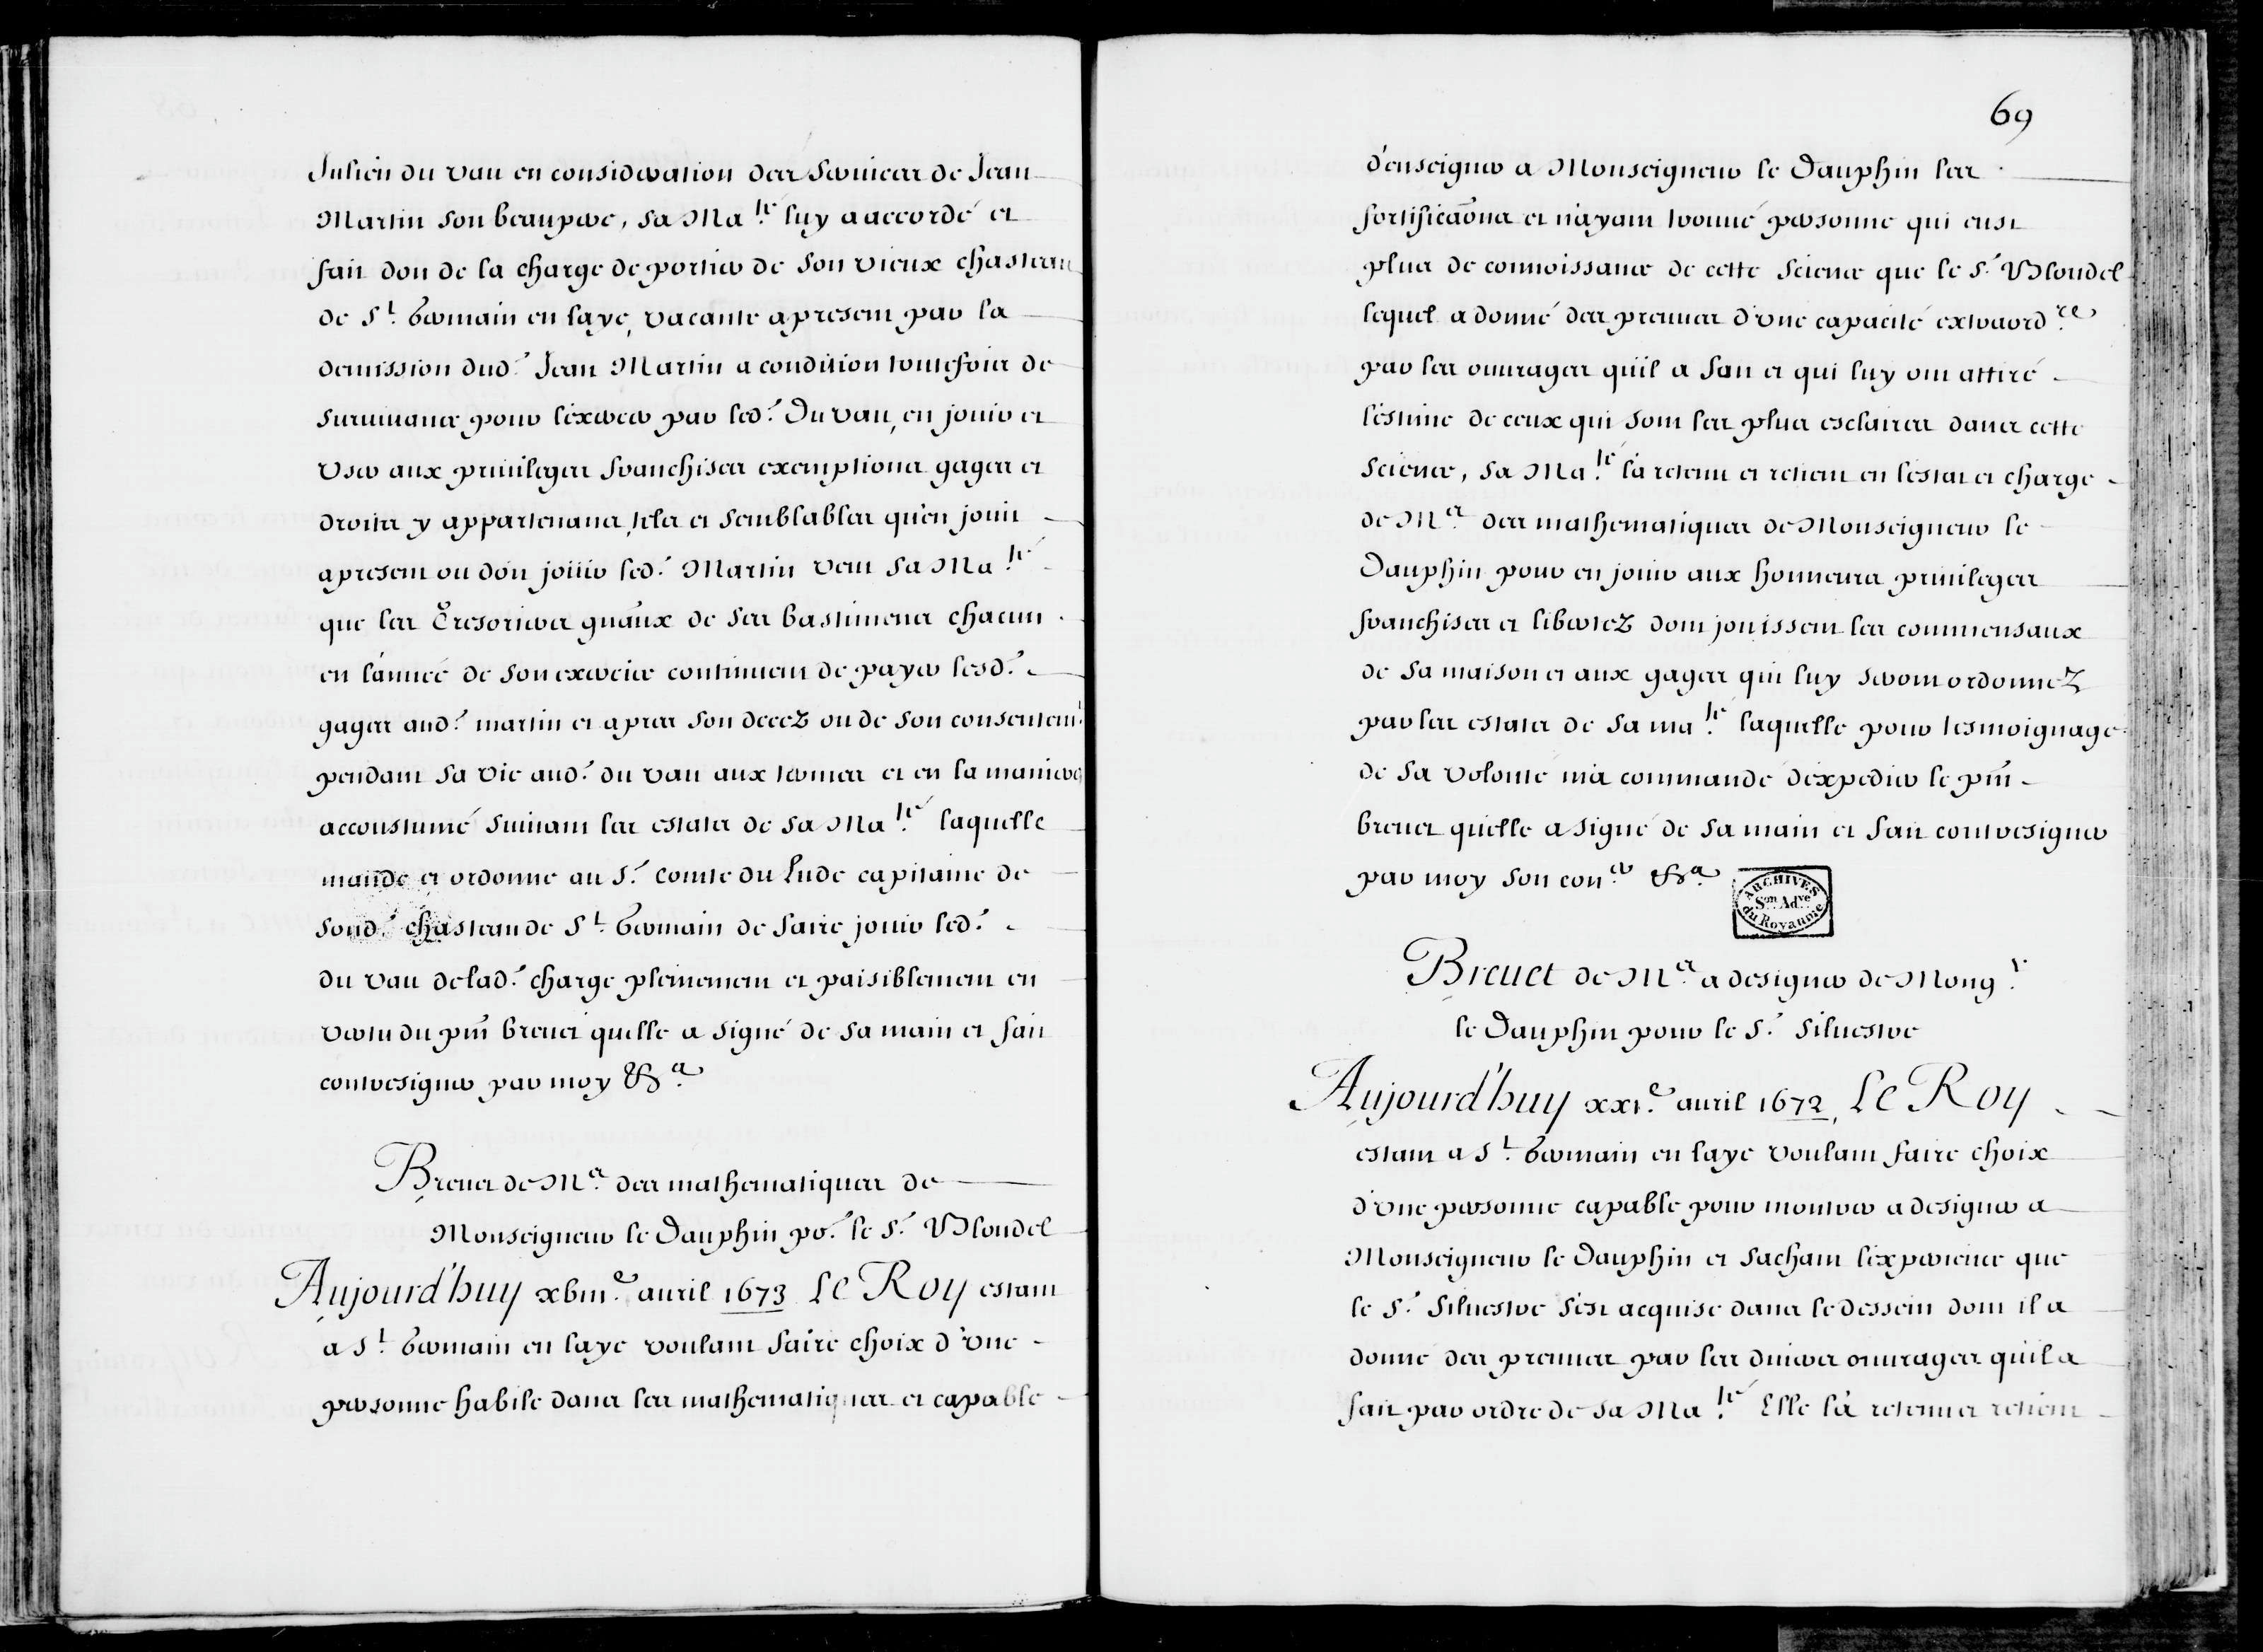 Julien du vau en consideration des seruices de Jean
Martin son beaupere, sa Ma.té luy a accordé et
fait don de la charge de portier de son vieux chasteau
de S.t Germain en laye, vacante apresent par la
demission dud.' Jean Martin a condition toutesfois de
suruiuance pour l'exercer par led.' Du vau, en jouir et
vser aux priuileges franchises exemptions gages et
droits y appartenans, tels et semblables qu'en jouit
apresent ou doit joüir led.' Martin veut sa Ma.té
que les Tresoriers gnãux de ses bastimens chacun
en l'année de son exercice continuent de payer lesd.'
gages aud.' martin et apres son decez ou de son consentem.t
pendant sa vie aud.' du vau aux termes et en la maniere
accoustumé suiuant les estats de sa Ma.té laquelle
mande et ordonne au S.r comte du Lude capitaine de
sond.' chasteau de S.t Germain de faire jouir led.'
du vau delad.' charge pleinement et paisiblement en
vertu du pñt breuet quelle a signé de sa main et fait
contresigner par moy &.a
Breuet de M.e des mathematiques de
Monseigneur le Dauphin po.r le S.r Blondel
Aujourd'huy xbiii.e auril 1673 Le Roy estant
a S.t Germain en laye voulant faire choix d'vne
personne habile dans les mathematiques et capable
69
d'enseigner a Monseigneur le Dauphin les
fortificaõns et n'ayant trouué personne qui eust
plus de connoissance de cette science que le S.r Blondel
lequel a donné des preuues d'vne capacité extraord.re
par les ouurages qu'il a fait et qui luy ont attiré
l'estime de ceux qui sont les plus esclairez dans cette
science, sa Ma.té l'a retenu et retient en l'estat et charge
de M.e des mathematiques de Monseigneur le
Dauphin pour en jouir aux honneurs priuileges
franchises et libertez dont jouissent les commensaux
de sa maison et aux gages qui luy seront ordonnez
par les estats de sa ma.té laquelle pour tesmoignage
de sa volonté m'a commandé d'expedier le pñt
breuet qu'elle a signé de sa main et fait contresigner
par moy son con.er &.a
ARCHIVES
S.on Ad.ve
du Royaume
Breuet de M.e a designer de Mong.r
le Dauphin pour le S.r Siluestre
Aujourd'huy xxi.e auril 1673, Le Roy
estant a S.t Germain en laye voulant faire choix
d'vne personne capable pour monstrer a designer a
Monseigneur le Dauphin et sachant l'experience que
le S.r Siluestre s'est acquise dans le dessein dont il a
donné des preuues par les diuers ouurages qu'il a
fait par ordre de sa Ma.té Elle l'a retenu et retient